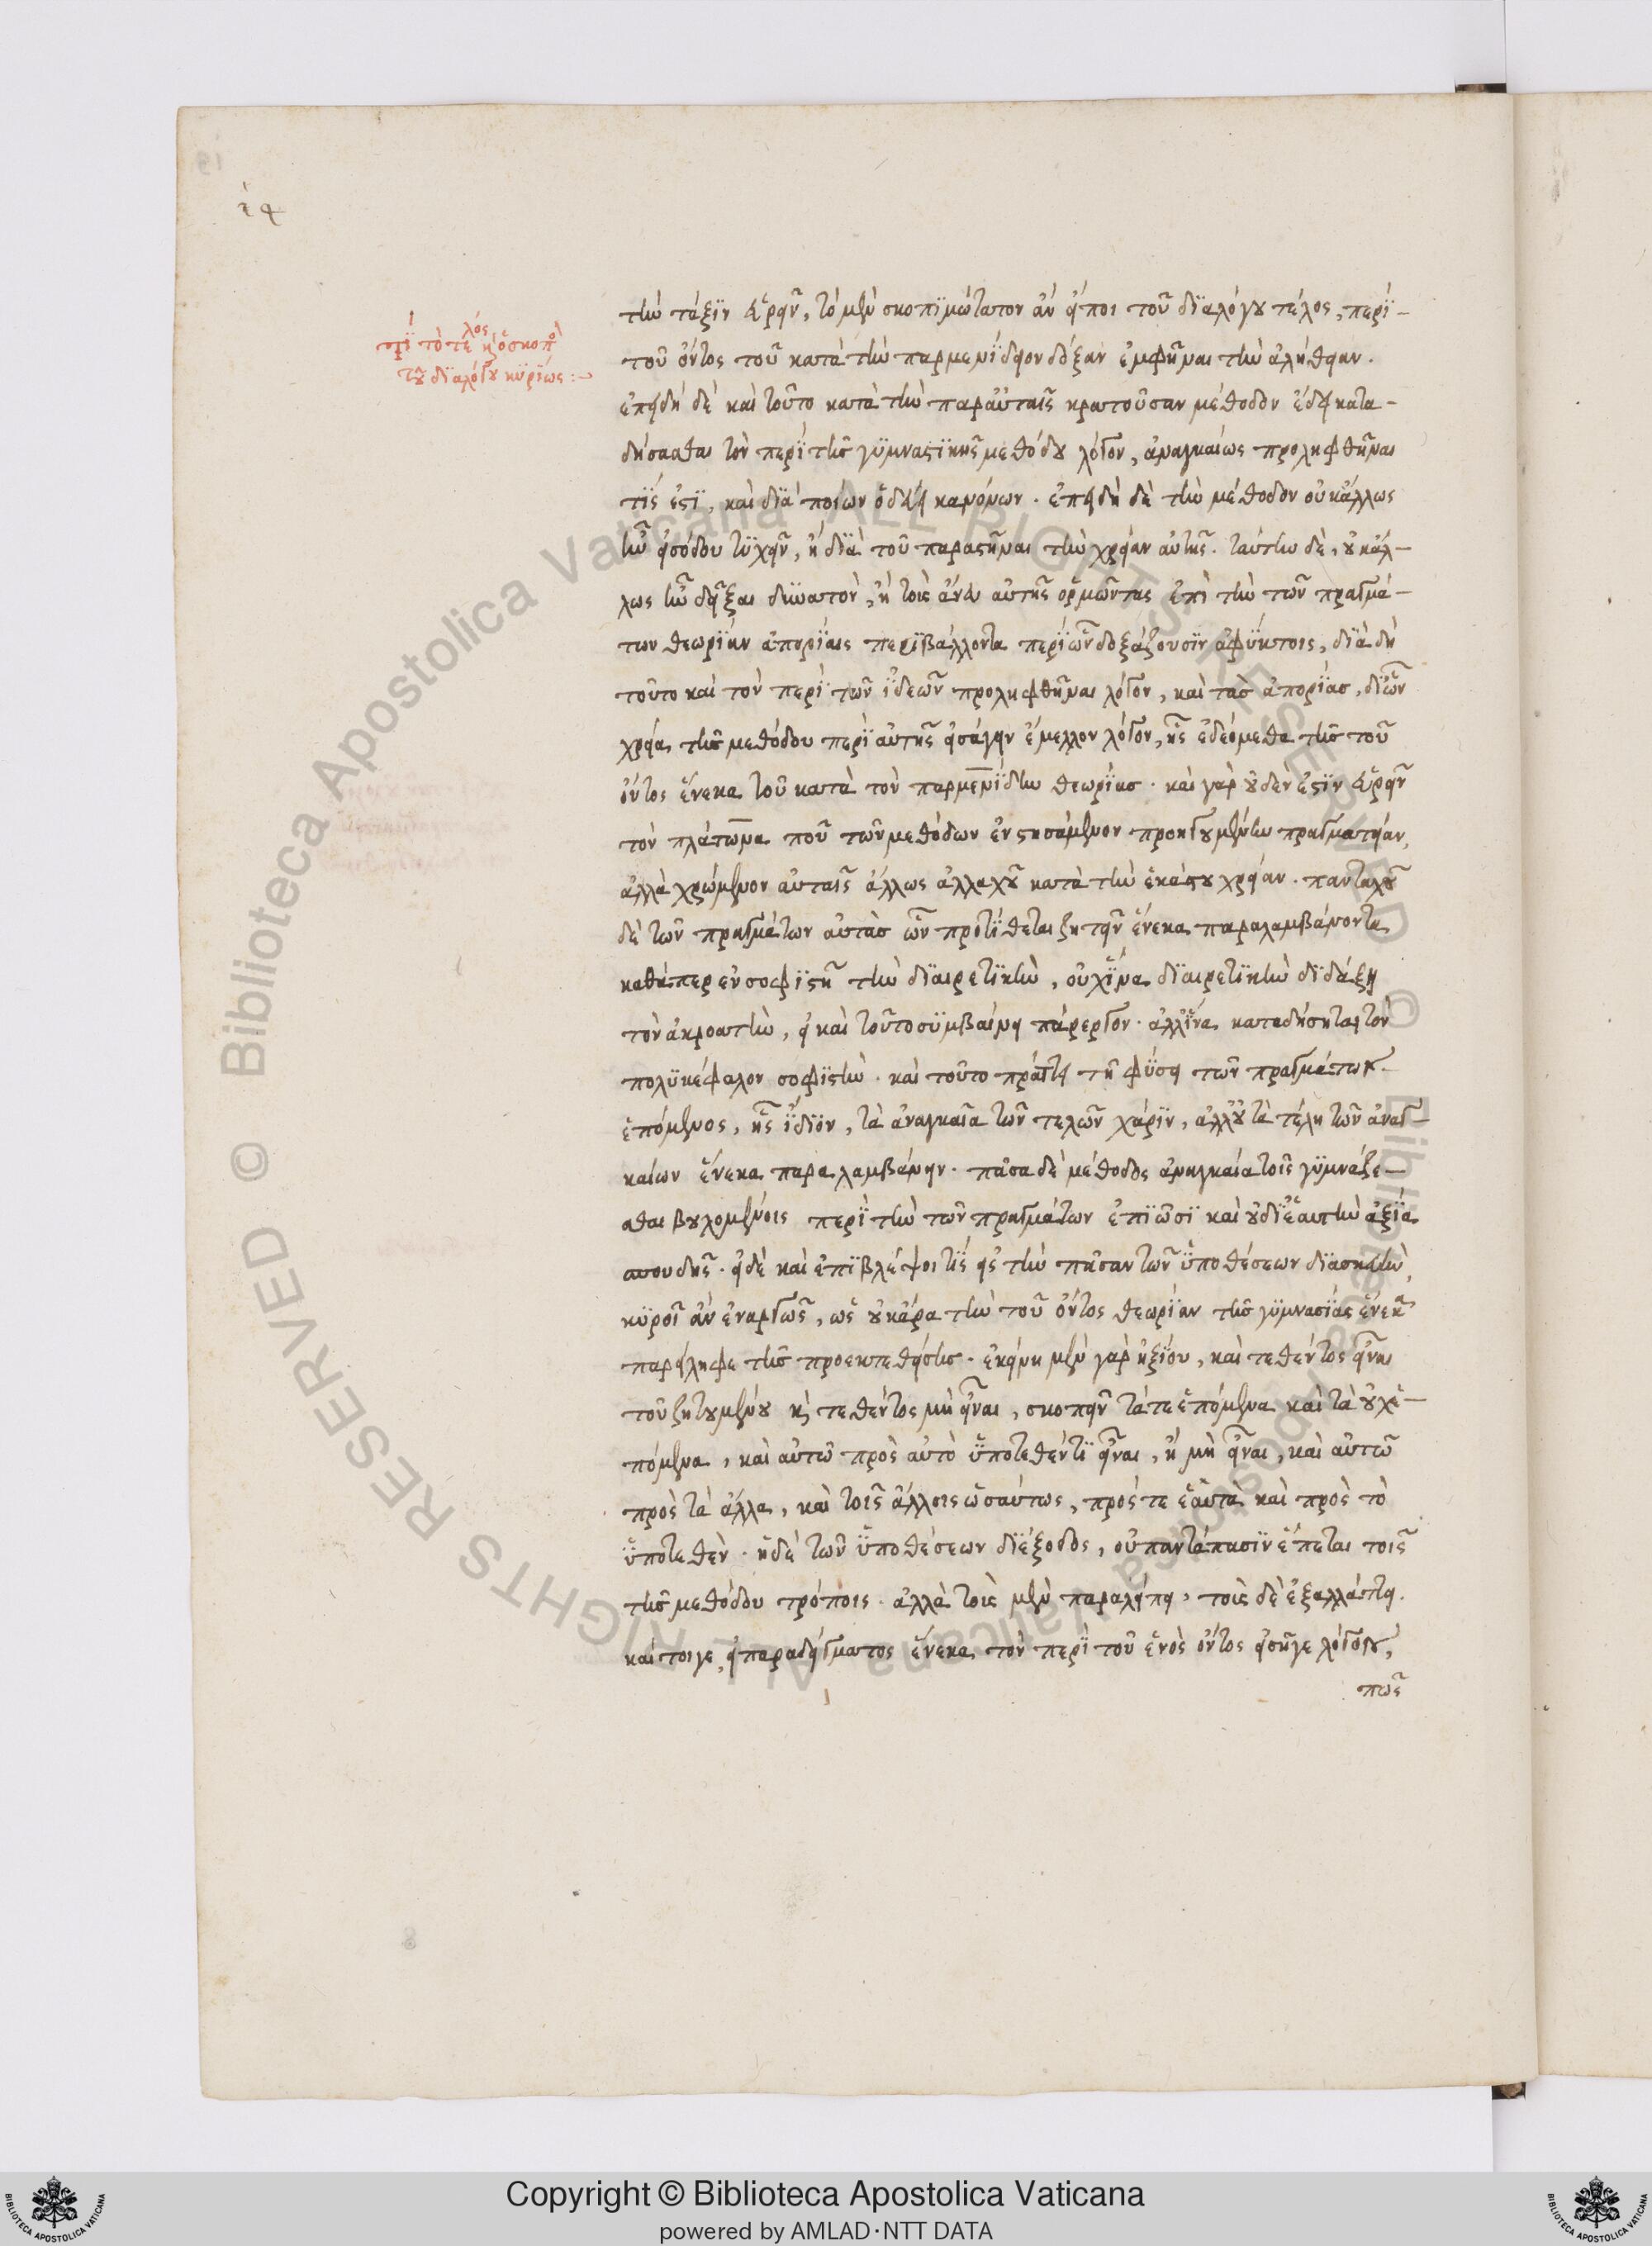 τί τὸ τέλος κ ὁ σκοπὸ
τοῦ διαλόγου κυρίως :~
τὴν τάξιν εὑρεῖν, τὸ μὲν σκοπιμώτατον ἂν εἴποι τοῦ διαλόγου τέλος, περὶ
τοῦ ὄντος τοῦ κατὰ τὴν παρμενίδειον δόξαν ἐμφῆναι τὴν ἀλήθειαν.
ἐπειδὴ δὲ καὶ τοῦτο κατὰ τὴν παραὐταῖς κρατοῦσαν μέθοδον ἔδει κατα-
δήσασθαι τὸν περὶ τῆς γυμναστικῆς μεθόδου λόγον, ἀναγκαίως προληφθῆναι
τίς ἐστι, καὶ διὰ ποίων ὁδεύει κανόνων. ἐπειδὴ δὲ τὴν μέθοδον οὐκἄλλως
ἦν εἰσόδου τυχεῖν, ἢ διὰ τοῦ παραστῆναι τὴν χρείαν αὐτῆς. ταύτην δὲ, οὐκἄλ-
λως ἦν δεῖξαι δυνατὸν, ἢ τοῖς ἄνευ αὐτῆς ὁρμῶντας ἐπὶ τὴν τῶν πραγμά-
των θεωρίαν ἀπορίαις περιβάλλοντα περὶὧν δοξάζουσιν ἀφύκτοις, διὰ δὴ
τοῦτο καὶ τὸν περὶ τῶν ἰδεῶν προληφθῆναι λόγον, καὶ τὰς ἀπορίας, διὧν
χρεία τῆς μεθόδου περὶ αὐτῆς εἰσάγειν ἔμελλον λόγον, ἧς ἐδεόμεθα τῆς τοῦ
ὄντος ἕνεκα τοῦ κατὰ τὸν παρμενίδην θεωρίας. καὶ γὰρ οὐδέν ἐστιν εὑρεῖν
τὸν πλάτωνα που τῶν μεθόδων ἐνστησάμενον προηγουμένην πραγματείαν,
ἀλλὰ χρώμενον αὐταῖς ἄλλως ἀλλαχοῦ κατὰ τὴν ἑκάστου χρείαν. πανταχοῦ
δὲ τῶν πραγμάτων αὐτὰς ὧν προτίθεται ζητεῖν ἕνεκα παραλαμβάνοντα
καθάπερ ἐν σοφιστῇ τὴν διαιρετικὴν, οὐχἵνα διαιρετικὴν διδάξῃ
τὸν ἀκροατὴν, εἰ καὶ τοῦτο συμβαίνει πάρεργον. ἀλλἵνα καταδήσηται τὸν
πολυκέφαλον σοφιστὴν. καὶ τοῦτο πράττει τῇ φύσει τῶν πραγμάτων
ἑπόμενος, ἧς ἴδιον, τὰ ἀναγκαῖα τῶν τελῶν χάριν, ἀλλοὐ τὰ τέλη τῶν ἀναγ-
καίων ἕνεκα παραλαμβάνειν. πᾶσα δὲ μέθοδος ἀναγκαία τοῖς γυμνάζε-
σθαι βουλομένοις περὶ τὴν τῶν πραγμάτων ἐπιὥσι καὶ οὐδιἑαυτὴν ἀξία
σπουδῆς. εἰ δὲ καὶ ἐπιβλέψοι τίς εἰς τὴν πᾶσαν τῶν ὑποθέσεων διασκευὴν,
κυροῖ ἂν ἐναργῶς, ὡς οὐκἄρα τὴν τοῦ ὄντος θεωρίαν τῆς γυμνασίας ἕνεκα
παρείληφε τῆς προεκτεθείσης. ἐκείνη μὲν γὰρ ἠξίου, καὶ τεθέντος εἶναι
τοῦ ζητουμένου κ τεθέντος μὴ εἶναι, σκοπεῖν τά τε ἑπόμενα καὶ τὰ οὐχἑ-
πόμενα, καὶ αὐτῷ πρὸς αὐτὸ ὑποτεθέντι εἶναι, ἢ μὴ εἶναι, καὶ αὐτῷ
πρὸς τὰ ἄλλα, καὶ τοῖς ἄλλοις ὡσαύτως, πρός τε ἑαυτὰ καὶ πρὸς τὸ
ὑποτεθέν. ἡ δὲ τῶν ὑποθέσεων διέξοδος, οὐ παντάπασιν ἕπεται τοῖς
τῆς μεθόδου τρόποις. ἀλλὰ τοὺς μὲν παραλείπει, τοὺς δὲ ἐξαλλάττει.
καίτοιγε, εἰ παραδείγματος ἕνεκα τὸν περὶ τοῦ ἑνὸς ὄντος εἰσῆγε λόγον,
πῶς